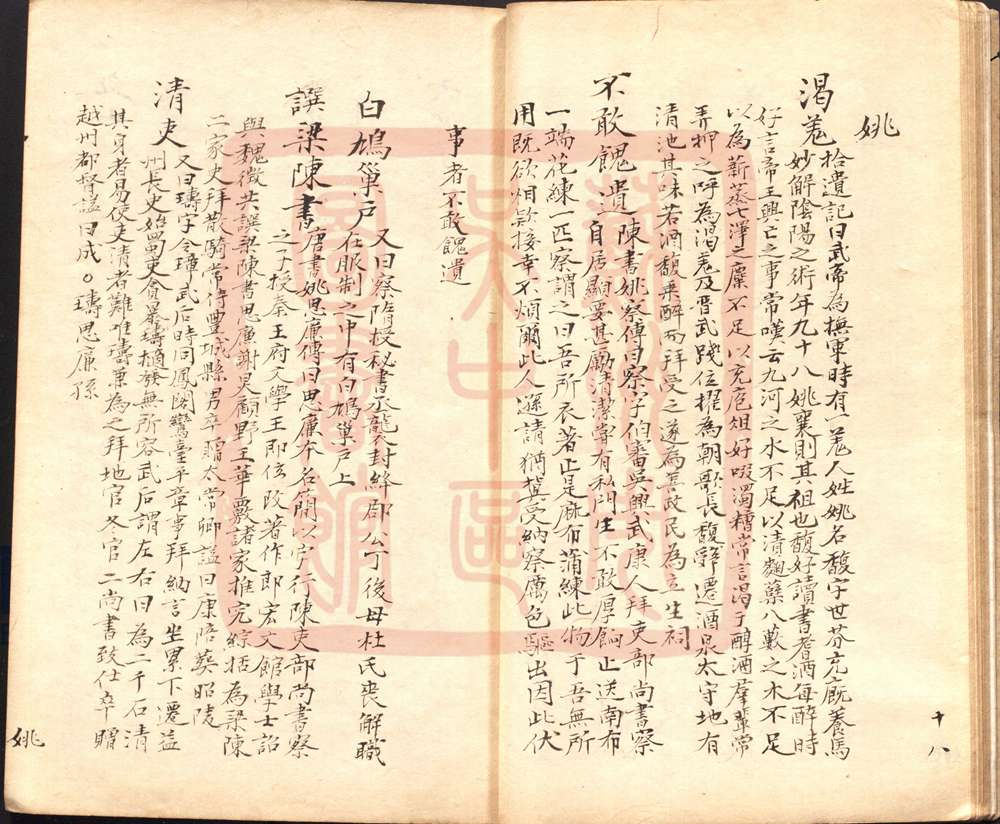 姚
渴羌拾遺記曰武帝為撫軍時有一羌人姓姚名馥字世芬充厩養馬
妙解陰陽之術年九十八姚襄則其祖也馥好讀書耆酒每醉時
好言帝王興亡之事常嘆云九河之水不足以漬麴蘖八藪之木不足
以為薪蒸七澤之麋不足以充庖俎好啜濁糟常言渴于醇酒羣輩常
弄押之呼為渴羌及晋武踐位擢為朝歌長馥辭遷酒泉太守地有
清池其味若酒馥乘醉而拜受之遂為善政民為立生祠
不敢餽遺陳書姚察傳曰察字伯審吳興武康人拜吏部尚書察
自居顯要甚勵清潔嘗有私門生不敢厚餉止送南布
一端花練一匹察謂之曰吾所衣著止是麻布蒲練此物于吾無所
用既欲相款接幸不煩爾此人遜請猶冀受納察厲色驅出因此伏
事者不敢餽遺
白鳩巢戶又曰察隋授秘書丞襲封絳郡公丁後母杜氏喪解職
在服制之中有白鳩巢戶上
譔梁陳書唐書姚思廉傳曰思廉本名簡以字行陳吏部尚書察
之子授秦王府文學王即位改著作郎宏文館學士詔
與魏徵共譔梁陳書思廉謝炅顧野王華覈諸家推究綜括為梁陳
二家史拜散騎常侍豐城縣男卒贈太常卿諡曰康陪葬昭陵
清吏又曰璹字令璋武后時同鳳閣鸞臺平章事拜納言坐累下遷益
州長史始蜀吏貪暴璹擿發無所容武后謂左右曰為二千石清
其身者易使吏清者難唯璹兼為之拜地官冬官二尚書致仕卒贈
越州都督諡曰成〇璹思廉孫
十八
姚